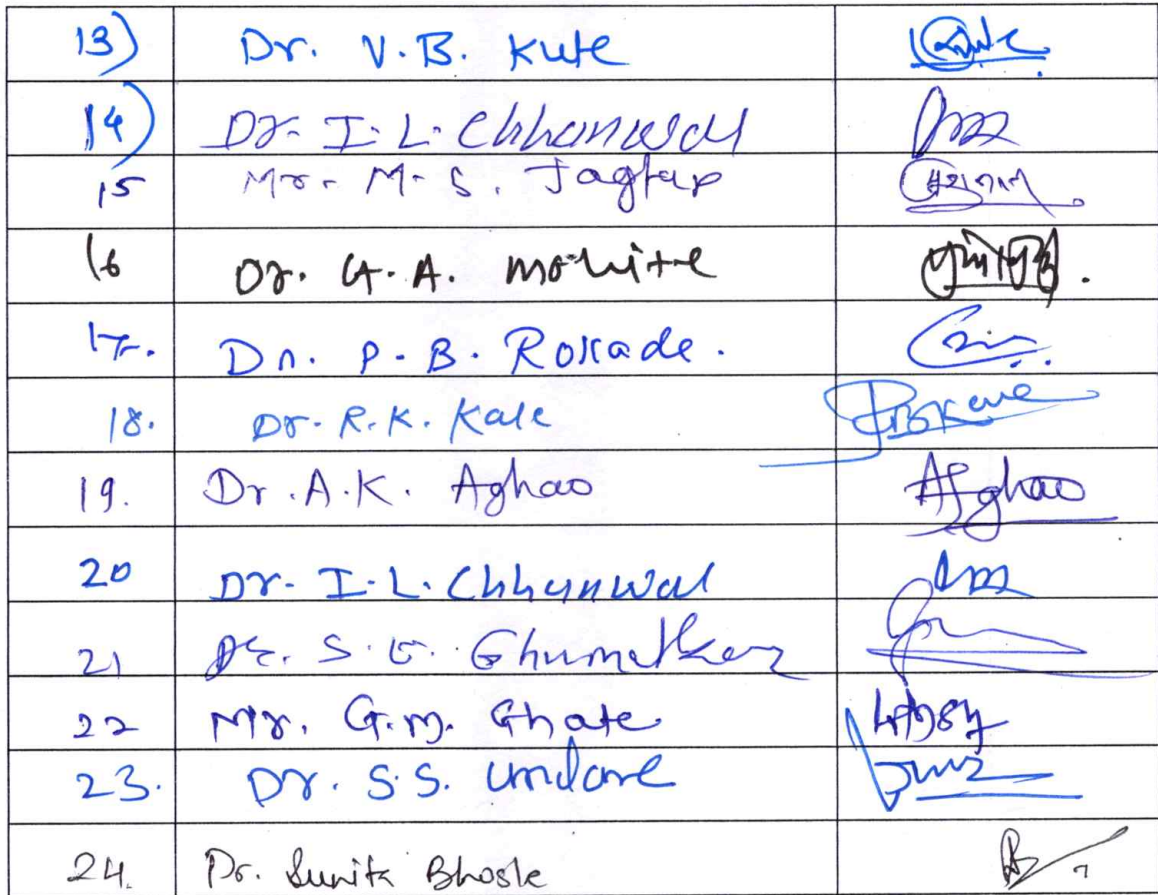 13) Dr. V.B. Kute
14) Dr. I.L. Chhanwal
15 Mr. M.S. Jagtap
16 Dr. G.A. mohite
17. Dr. P.B. Rokade.
18. Dr. R.K. Kale
19. Dr. A.K. Aghao Afghao
20 Dr. I.L. Chhanwal
21 Dr. S.G. Ghumatkar
22 Mr. G.M. Ghate
23. Dr. S.S. Undare
24. Dr. Sunita Bhosle